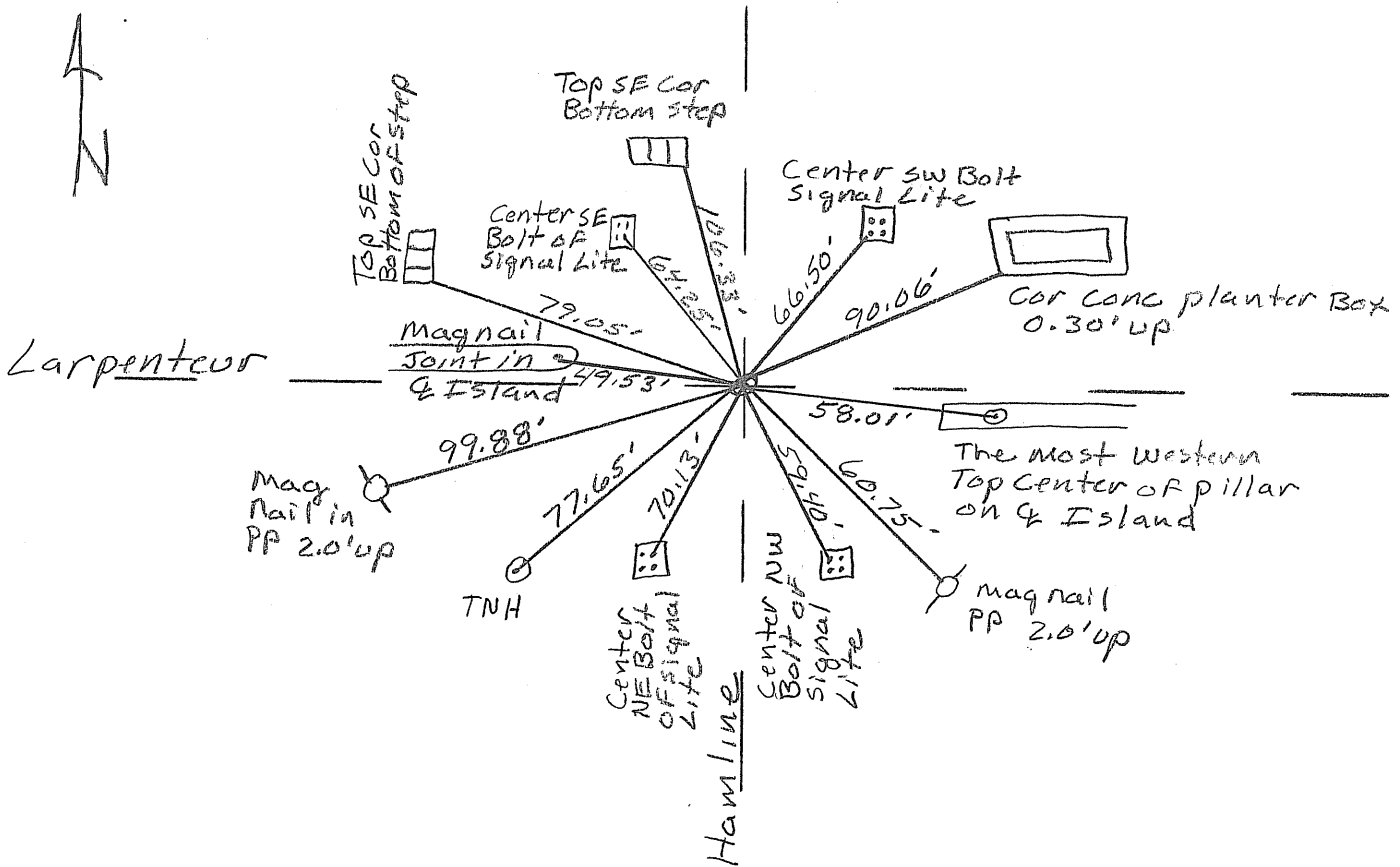 N
Top SE Cor
Bottom of step
Top SE Cor
Bottom step
Center SE
Bolt of
Signal Lite
Center SW Bolt
Signal Lite
Cor Conc planter Box
0.30' up
106.33'
64.25'
66.50'
90.06'
79.05'
Larpenteur
Magnail
Joint in
℄ Island
49.53'
58.01'
The most western
Top Center of pillar
on ℄ Island
99.88'
77.65'
70.13'
59.40'
60.75'
Mag
Nail in
PP 2.0' up
TNH
Center
NE Bolt
of signal
Lite
Center NW
Bolt of
Signal
Lite
Magnail
PP 2.0' up
Hamline